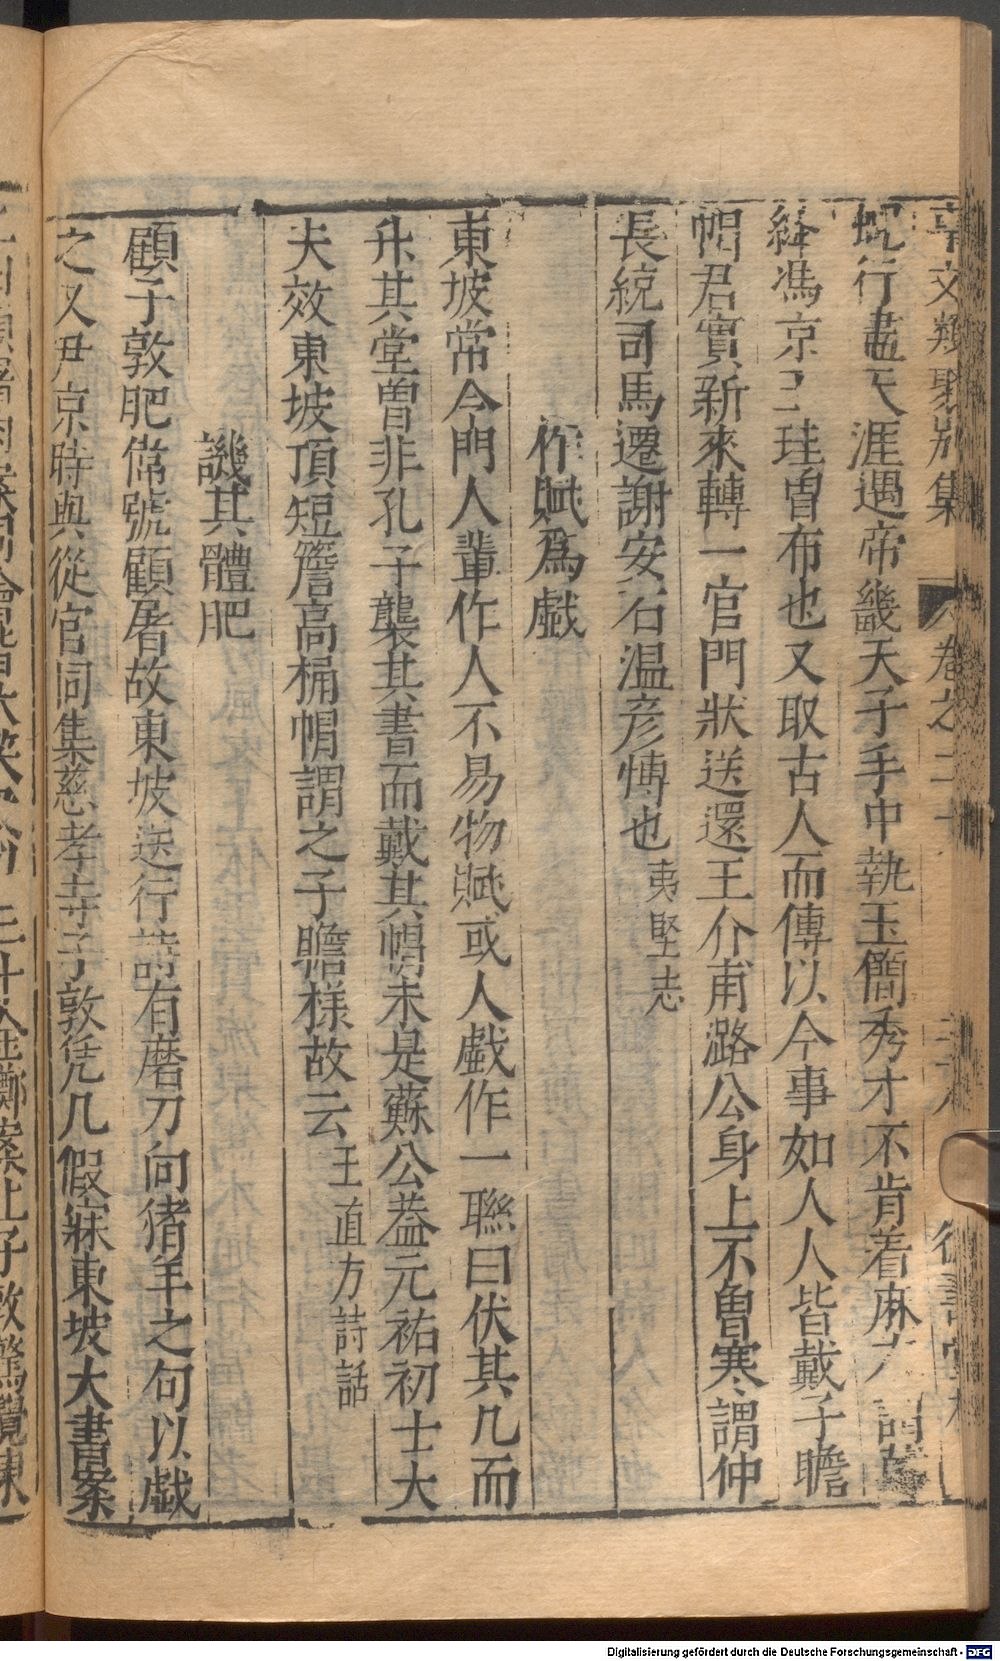 事文類聚別集 卷之二十
蜺行盡天涯遇帝畿天子手中執玉簡秀才不肯着麻衣謂
絳馮京王珪曾布也又取古人而傳以今事如人人皆戴子瞻
帽君實新來轉一官門狀送還王介甫潞公身上不曾寒謂仲
長統司馬遷謝安石溫彥博也夷堅志
作賦為戲
東坡常令門人輩作人不易物賦或人戲作一聯曰伏其几而
升其堂曽非孔子襲其書而戴其帽未是蘇公葢元祐初士大
夫效東坡頂短簷高桶帽謂之子瞻樣故云王直方詩話
譏其體肥
顧子敦肥偉號顧屠故東坡送行詩有磨刀向猪羊之句以戲
之又尹京時與從官同集慈孝寺子敦凭几假寐東坡大書案
Digitalisierung gefördert durch die Deutsche Forschungsgemeinschaft - DFG